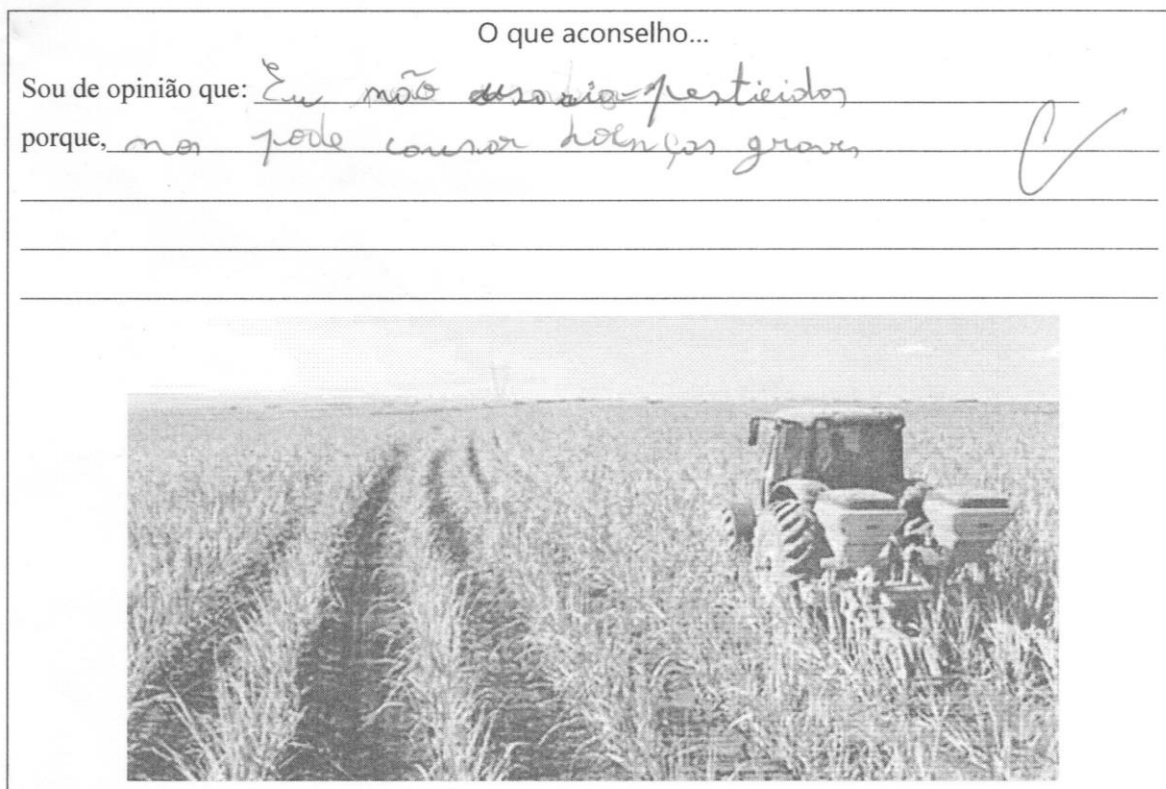 O que aconselho...
Sou de opinião que: Eu não usaria pesticidos
porque, nos pode causar doenças graves